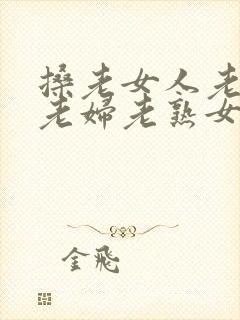 搡老女人老
老妇老熟女
金飛